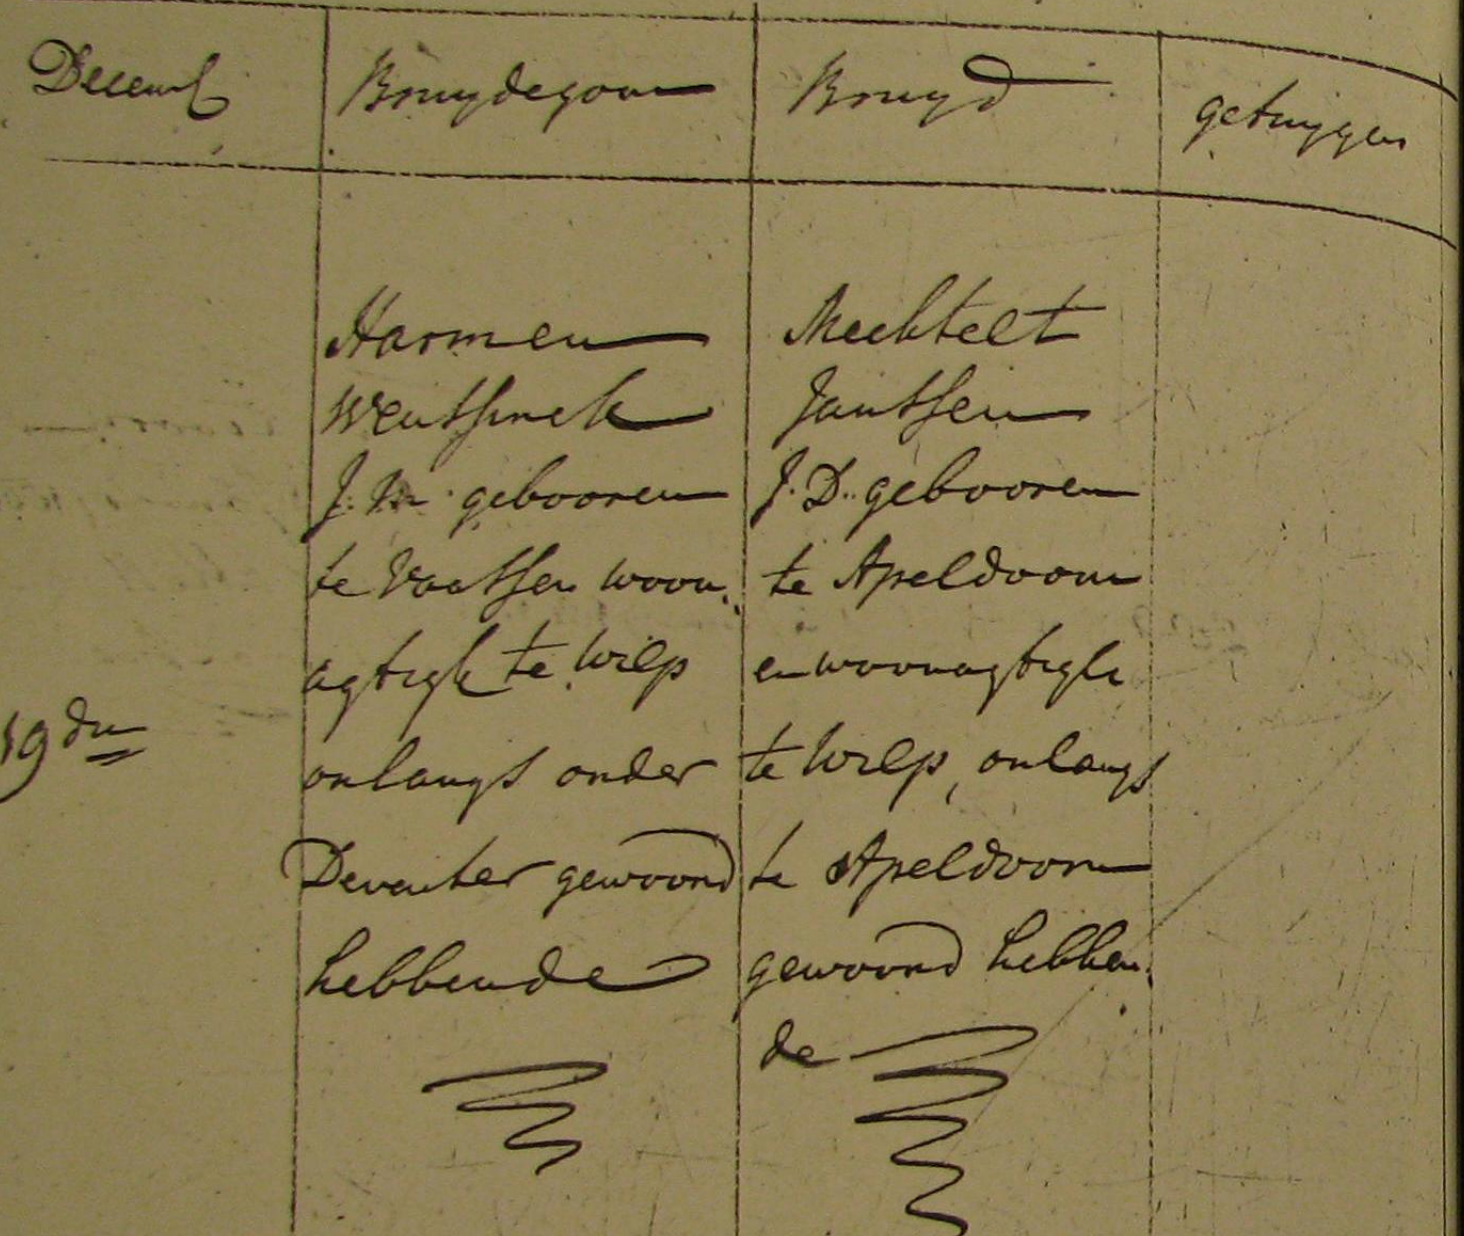 Decemb
Bruydegom
Bruyd
getuygen
19den
Harmen
Wentsinck
J. M. gebooren
te Vaassen woon
agtigh te Wilp
onlangs onder
Deventer gewoond
hebbende
Mechtelt
Janssen
J. D. gebooren
te Apeldoorn
en woonagtigh
te Wilp, onlangs
te Apeldoorn
gewoond hebben
de